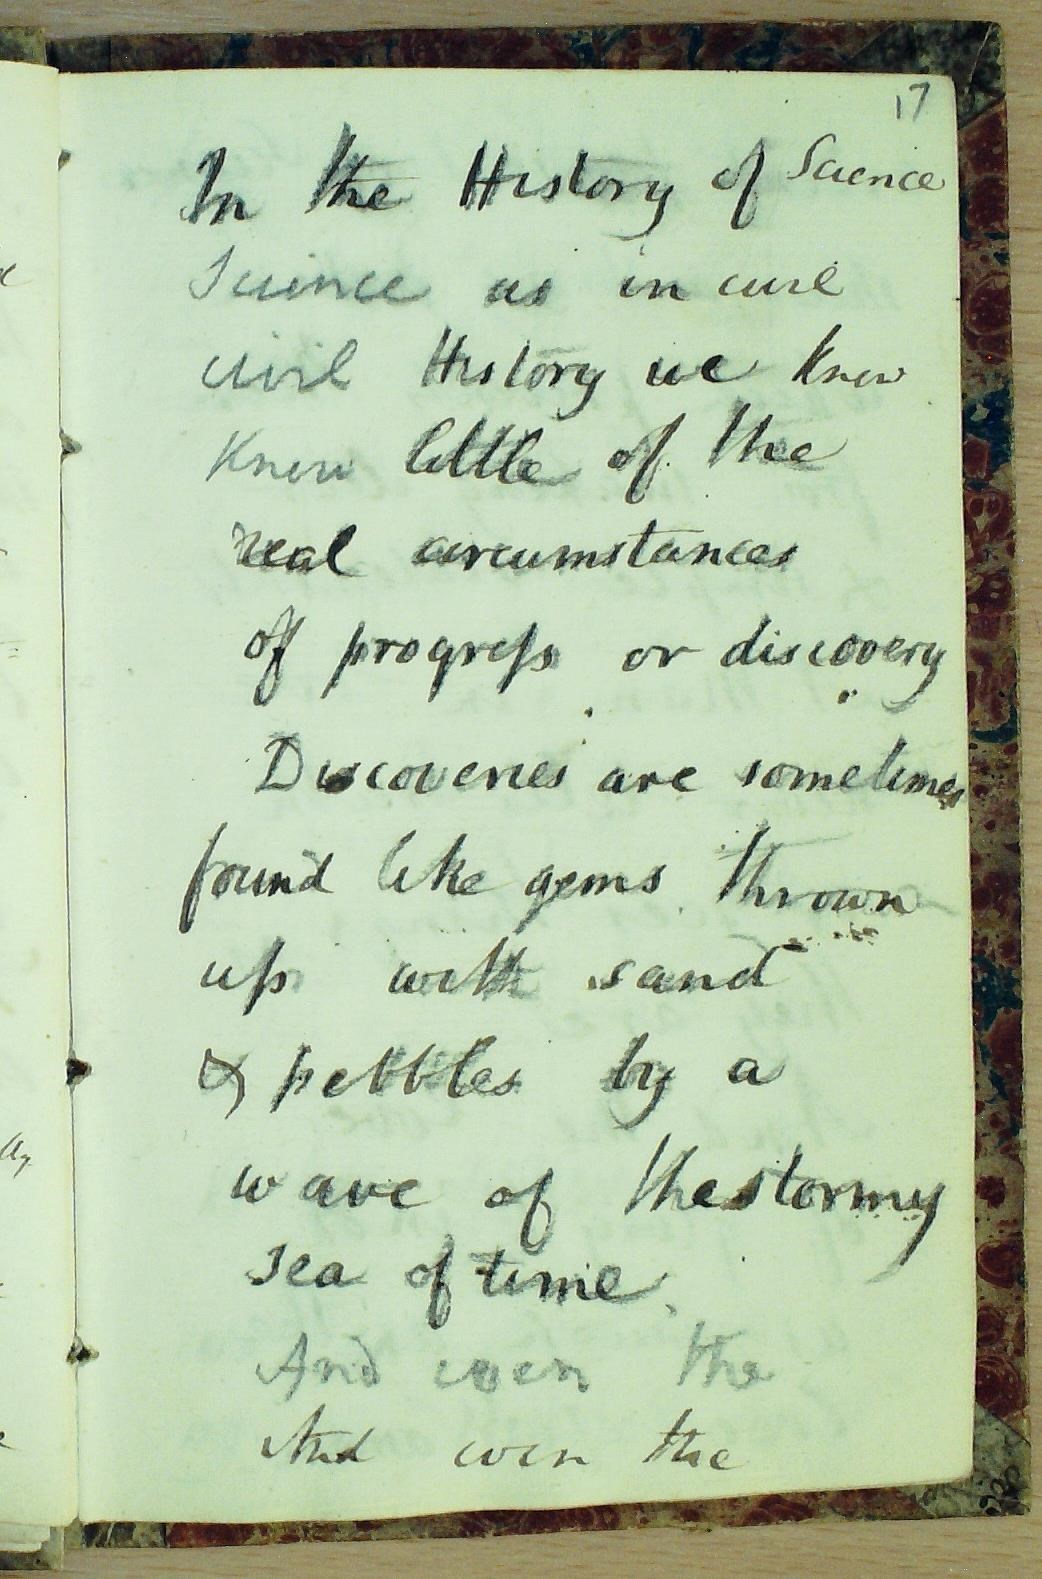 17
In the History of Science
Science as in civil
civil History we know
Know little of the
real circumstances
of progress or discovery
Discoveries are sometimes
found like gems thrown
up with sand
& pebbles by a
wave of the stormy
sea of time.
And even the
And even the